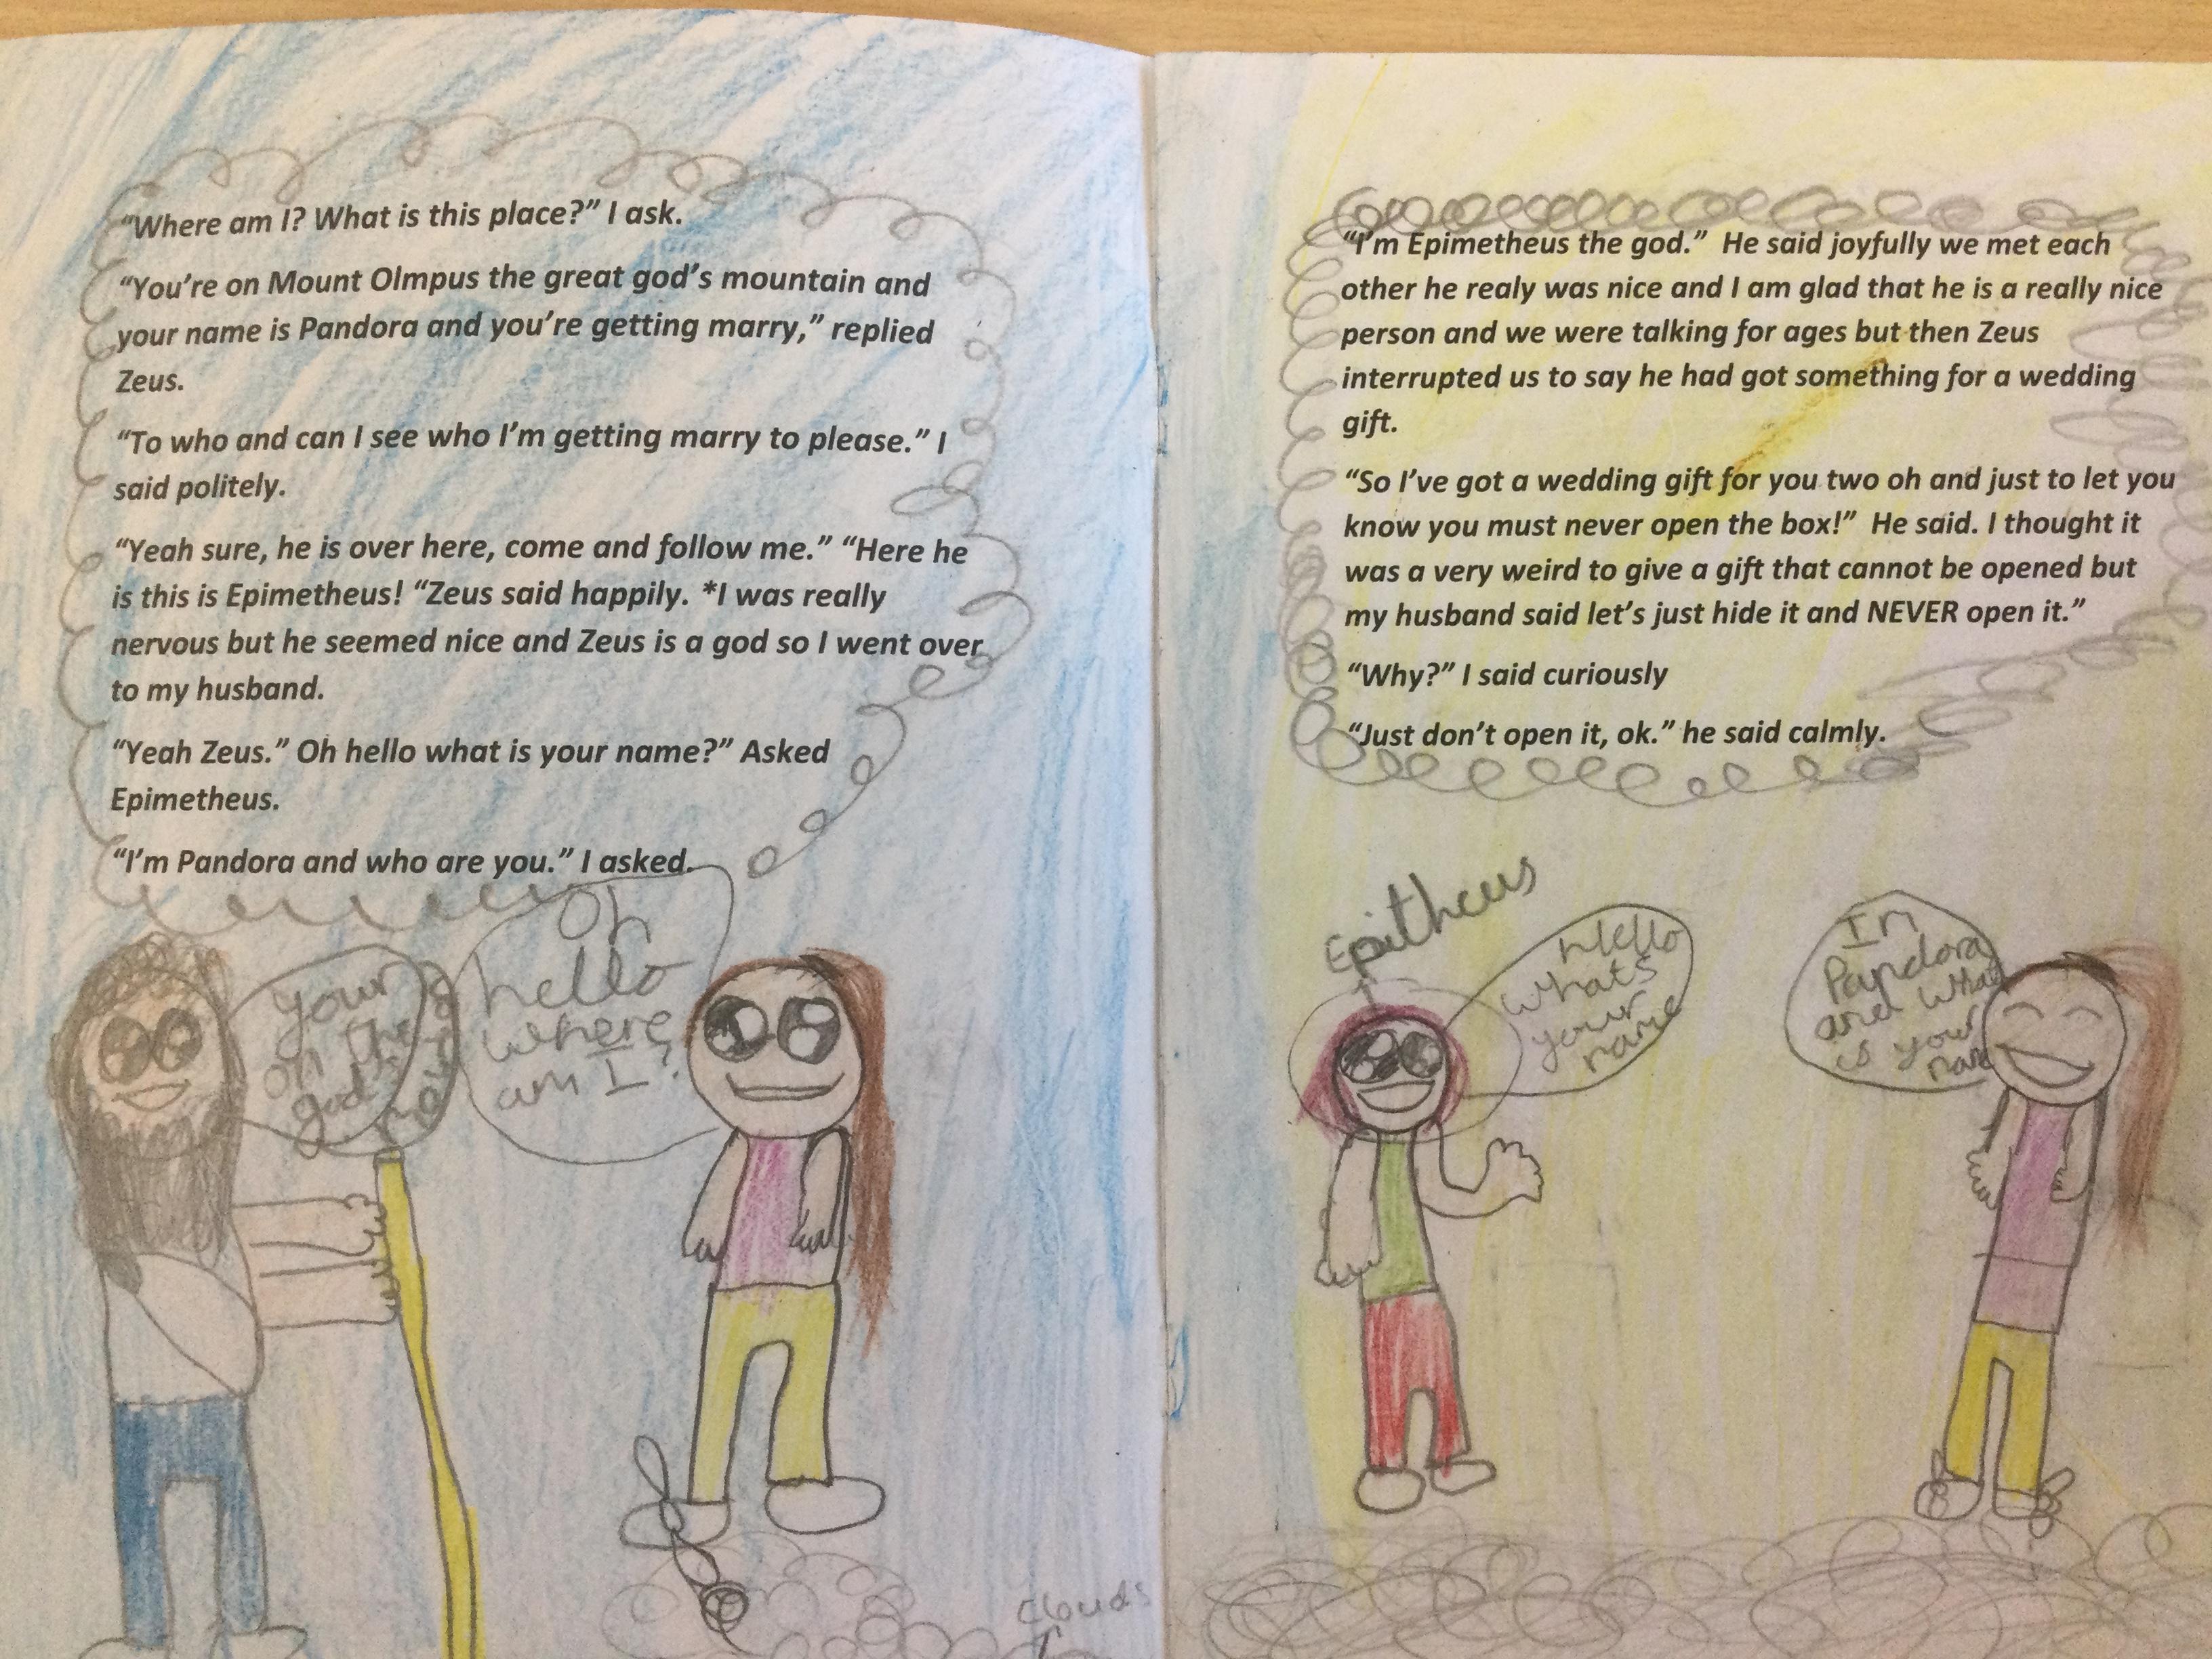 “Where am I? What is this place?” I ask.
“You’re on Mount Olmpus the great god’s mountain and
your name is Pandora and you’re getting marry,” replied
Zeus.
“To who and can I see who I’m getting marry to please.” I
said politely.
“Yeah sure, he is over here, come and follow me.” “Here he
is this is Epimetheus! “Zeus said happily. *I was really
nervous but he seemed nice and Zeus is a god so I went over
to my husband.
“Yeah Zeus.” Oh hello what is your name?” Asked
Epimetheus.
“I’m Pandora and who are you.” I asked.
your
on the
god's
Oh
hello
where
am I?
Clouds
“I’m Epimetheus the god.” He said joyfully we met each
other he realy was nice and I am glad that he is a really nice
person and we were talking for ages but then Zeus
interrupted us to say he had got something for a wedding
gift.
“So I’ve got a wedding gift for you two oh and just to let you
know you must never open the box!” He said. I thought it
was a very weird to give a gift that cannot be opened but
my husband said let’s just hide it and NEVER open it.”
“Why?” I said curiously
“Just don’t open it, ok.” he said calmly.
Epitheus
Hello
whats
your
name
Im
Pandora
and what
is your
name